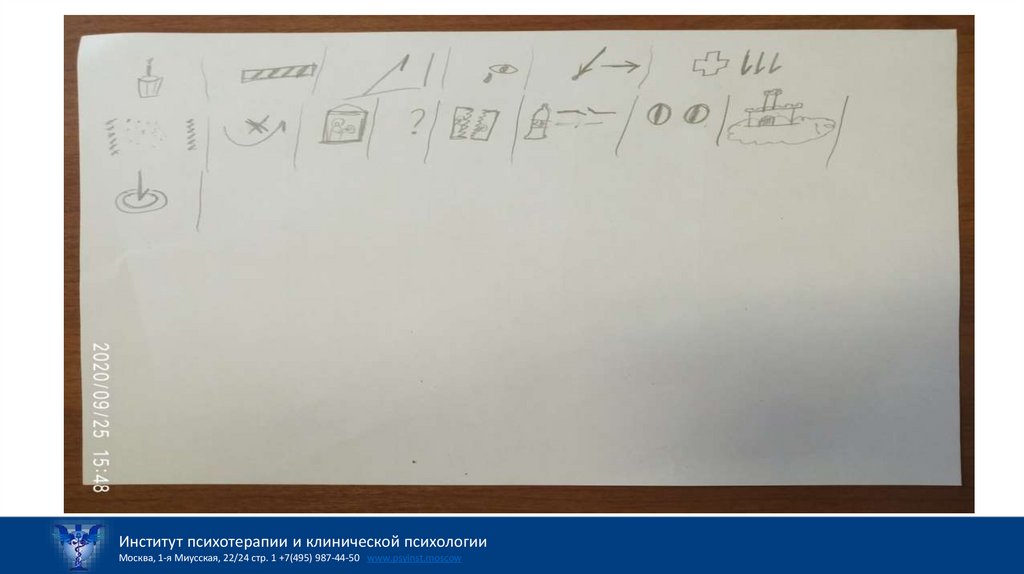 ?
2020/09/25 15:48
Институт психотерапии и клинической психологии
Москва, 1-я Миусская, 22/24 стр. 1 +7(495) 987-44-50 www.psyinst.moscow